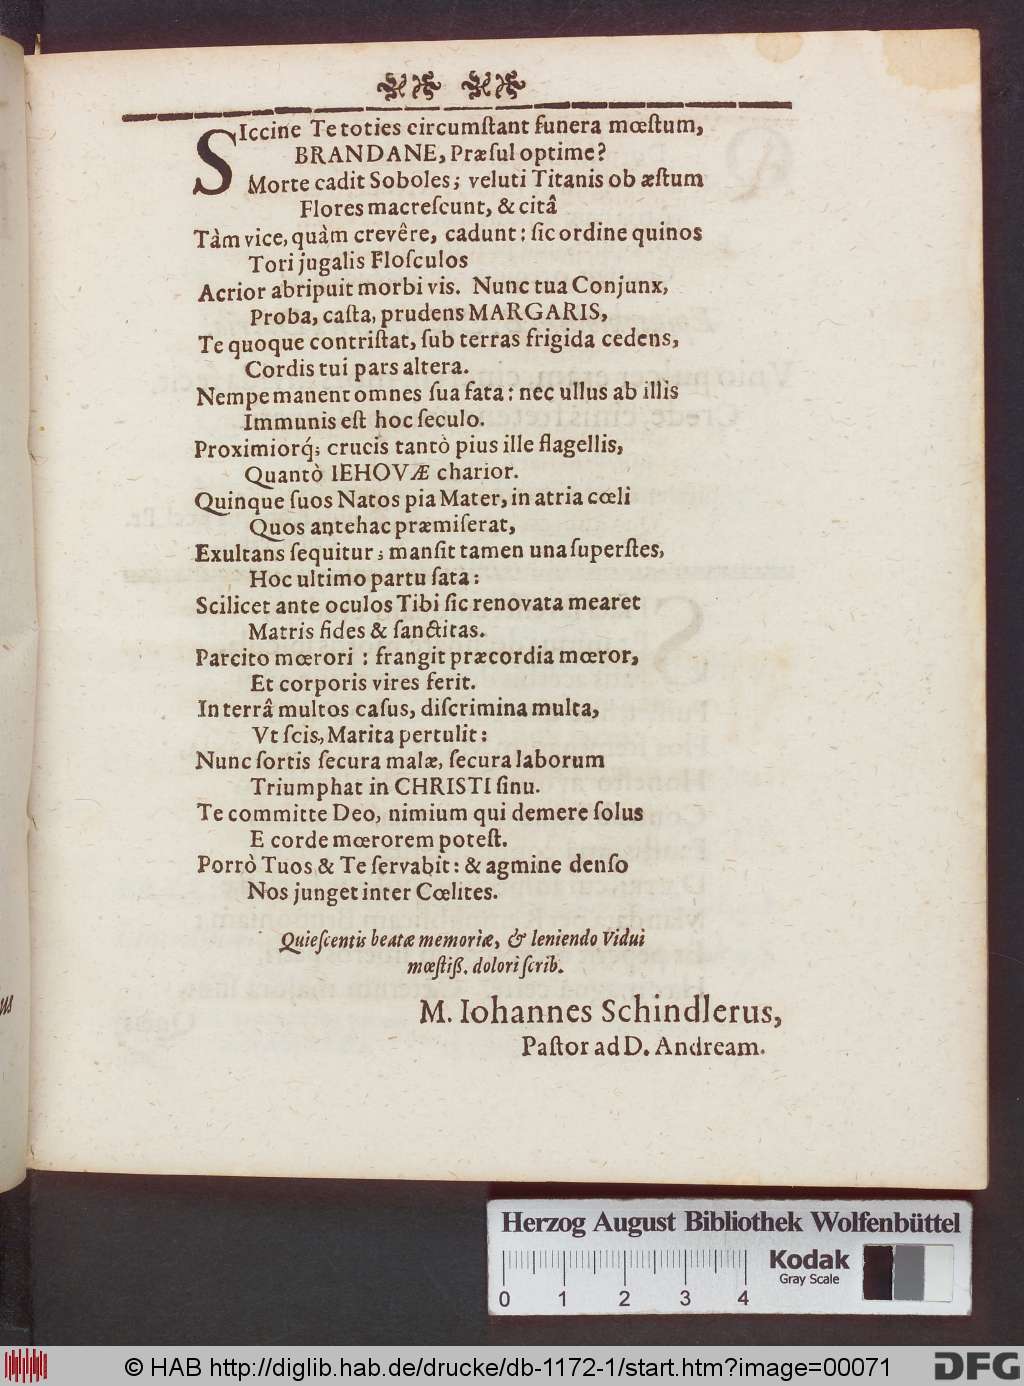 SIccine Te toties circumſtant funera mœſtum,
BRANDANE, Præſul optime?
Morte cadit Soboles; veluti Titanis ob æſtum
Flores macreſcunt, & citâ
Tàm vice, quàm crevêre, cadunt: ſic ordine quinos
Tori jugalis Floſculos
Acrior abripuit morbi vis. Nunc tua Conjunx,
Proba, caſta, prudens MARGARIS,
Te quoque contriſtat, ſub terras frigida cedens,
Cordis tui pars altera.
Nempe manent omnes ſua fata: nec ullus ab illis
Immunis eſt hoc ſeculo.
Proximiorq́; crucis tantò pius ille flagellis,
Quantò IEHOVÆ charior.
Quinque ſuos Natos pia Mater, in atria cœli
Quos antehac præmiſerat,
Exultans ſequitur; manſit tamen una ſuperſtes,
Hoc ultimo partu ſata:
Scilicet ante oculos Tibi ſic renovata mearet
Matris fides & ſanctitas.
Parcito mœrori: frangit præcordia mœror,
Et corporis vires ferit.
In terrâ multos caſus, diſcrimina multa,
Vt ſcis, Marita pertulit:
Nunc ſortis ſecura malæ, ſecura laborum
Triumphat in CHRISTI ſinu.
Te committe Deo, nimium qui demere ſolus
E corde mœrorem poteſt.
Porrò Tuos & Te ſervabit: & agmine denſo
Nos junget inter Cœlites.
Quieſcentis beatæ memoriæ, & leniendo Vidui
mœſtiß. dolori ſcrib.
M. Iohannes Schindlerus,
Paſtor ad D. Andream.
us
Herzog August Bibliothek Wolfenbüttel
Kodak
Gray Scale
0 1 2 3 4
© HAB http://diglib.hab.de/drucke/db-1172-1/start.htm?image=00071
DFG